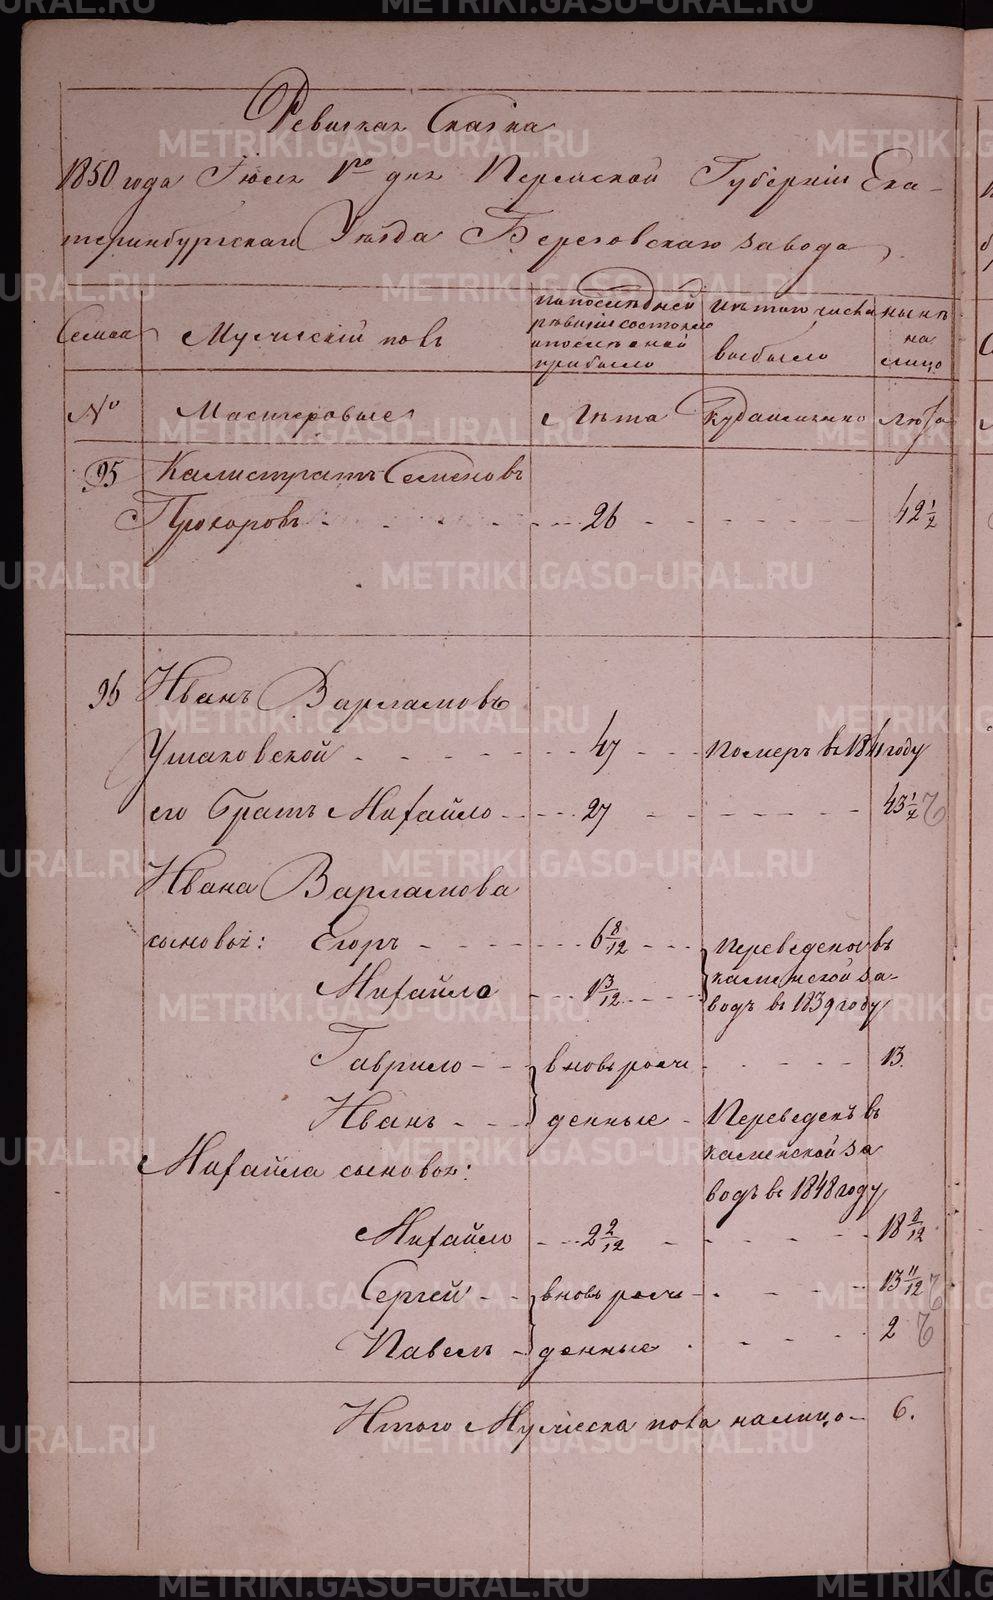 Ревизская Сказка
1850 года Июля 1го дня Пермской Губернiи Ека-
теринбургскаго Уѣзда Березовскаго завода
Семьи
Мужескiй полъ
По последней
ревизiи состояло
и после оной
прибыло
Изъ того числа
выбыло
нынѣ
на
лицо
№
Мастеровые
Лѣта
Куда именно
лѣта
95 Калистратъ Семеновъ
Прохоровъ - - - - 26 - - - - - - 42 1/2
96 Иванъ Варламовъ
Ушаковской - - - - - 47 - - - Померъ въ 1841 году
его Братъ Михайло - - - - 27 - - - - - - 43 1/2
Ивана Варламова
сыновья: Егоръ - - - - - 6 8/12 - - -
Михайло - - - 1 3/12 - - - -
Переведены въ
каменской за-
водъ въ 1839 году
Гаврило - - вновь рож - - - - - 13.
Иванъ - - - денные - Переведенъ въ
каменской за
водъ въ 1848 году
Михайла сыновья:
Михайло - - - 2 2/12 - - - - - - 18 8/12
Сергей - - вновь рож - - - - - 13 11/12
Павелъ - денные - - - - 2
Итого Мужеска пола налицо - 6.
METRIKI.GASO-URAL.RU